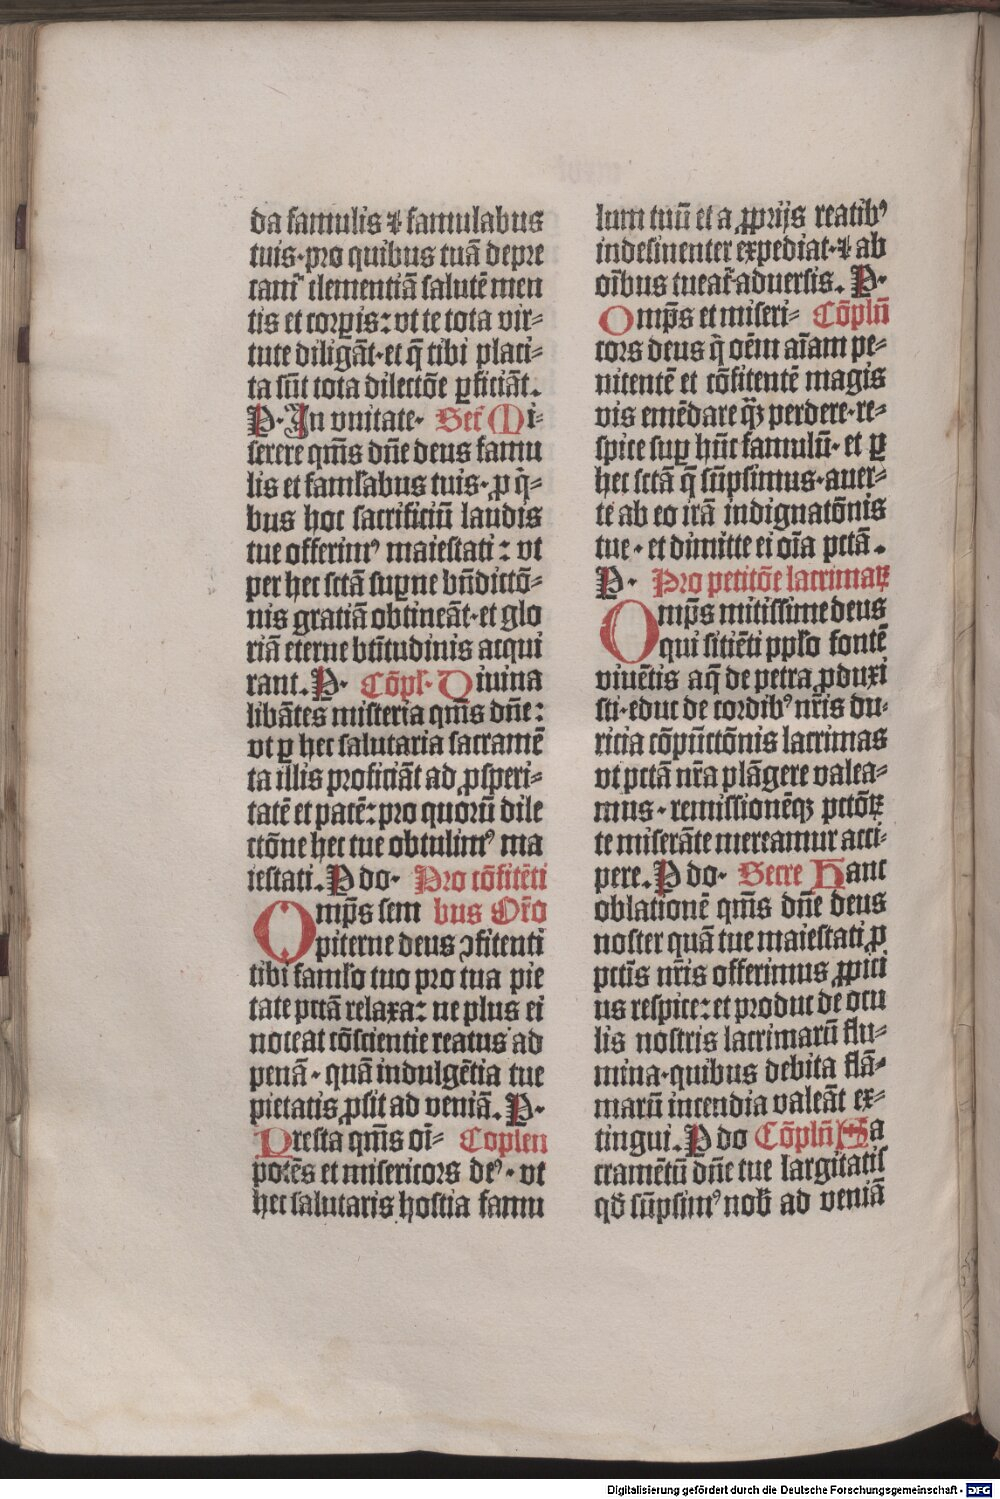 da famulis ⁊ famulabus
tuis·pro quibus tuā depre
camr̄ clementiā salutē men
tis et corꝑis: vt te tota vir⸗
tute diligāt·et q̄ tibi placi⸗
ta sūt tota dilectōe ꝑficiāt.
P· In vnitate· Secr̄ Mi⸗
serere qm̄s dn̄e deus famu
lis et famłabus tuis· ꝓ q̇⸗
bus hoc sacrificiū laudis
tue offerimꝰ maiestati: vt
per hec sctā suꝑne bn̄dictō⸗
nis gratiā obtineāt·et glo
riā eterne bt̄itudinis acqui
rant. P· Cōpł· Diuina
libātes misteria qm̄s dn̄e:
vt ꝑ hec salutaria sacramē
ta illis proficiāt ad ꝓsperi⸗
tatē et pacē: pro quorū dile
ctōne hec tue obtulimꝰ ma
iestati. P do· Pro cōfitēti
Omp̄s sem bus Or̄o
piterne deus ꝯfitenti
tibi famło tuo pro tua pie
tate pctā relaxa: ne plus ei
noceat cōscientie reatus ad
penā· quā indulgētia tue
pietatis ꝓsit ad veniā. P·
Presta qm̄s oī⸗ Coplen
potēs et misericors deꝰ· vt
hec salutaris hostia famu
lum tuū et a ꝓprijs reatibꝰ
indesinenter expediat·⁊ ab
oībus tueat̄ aduersis. P·
Omp̄s et miseri⸗ Cōpln̄
cors deus q̇ oēm aīam pe⸗
nitentē et cōfitentē magis
vis emēdare q̄ꝫ perdere·re⸗
spice suꝑ hūc famulū· et ꝑ
hec sctā q̄ sūpsimus·auer⸗
te ab eo irā indignatōnis
tue· et dimitte ei oīa pctā.
P· Pro petitōe lacrimaꝝ
Omp̄s mitissime deus
qui sitiēti ppło fontē
viuētis aq̄ de petra ꝓduxi
sti·educ de cordibꝰ nr̄is du⸗
ricia cōpūctōnis lacrimas
vt pctā nr̄a plāgere valea⸗
mus· remissionēqꝫ pctōꝝ
te miserāte mereamur acci⸗
pere. P do· Secre Hanc
oblationē qm̄s dn̄e deus
noster quā tue maiestati ꝓ
pctīs nr̄is offerimus ꝓpici
us respice: et produc de ocu
lis nostris lacrimarū flu⸗
mina·quibus debita flā⸗
marū incendia valeāt ex⸗
tingui. P do Cōpln̄ Sa
cramētū dn̄e tue largitatis
qđ sūpsimꝰ nob̄ ad veniā
Digitalisierung gefördert durch die Deutsche Forschungsgemeinschaft - DFG